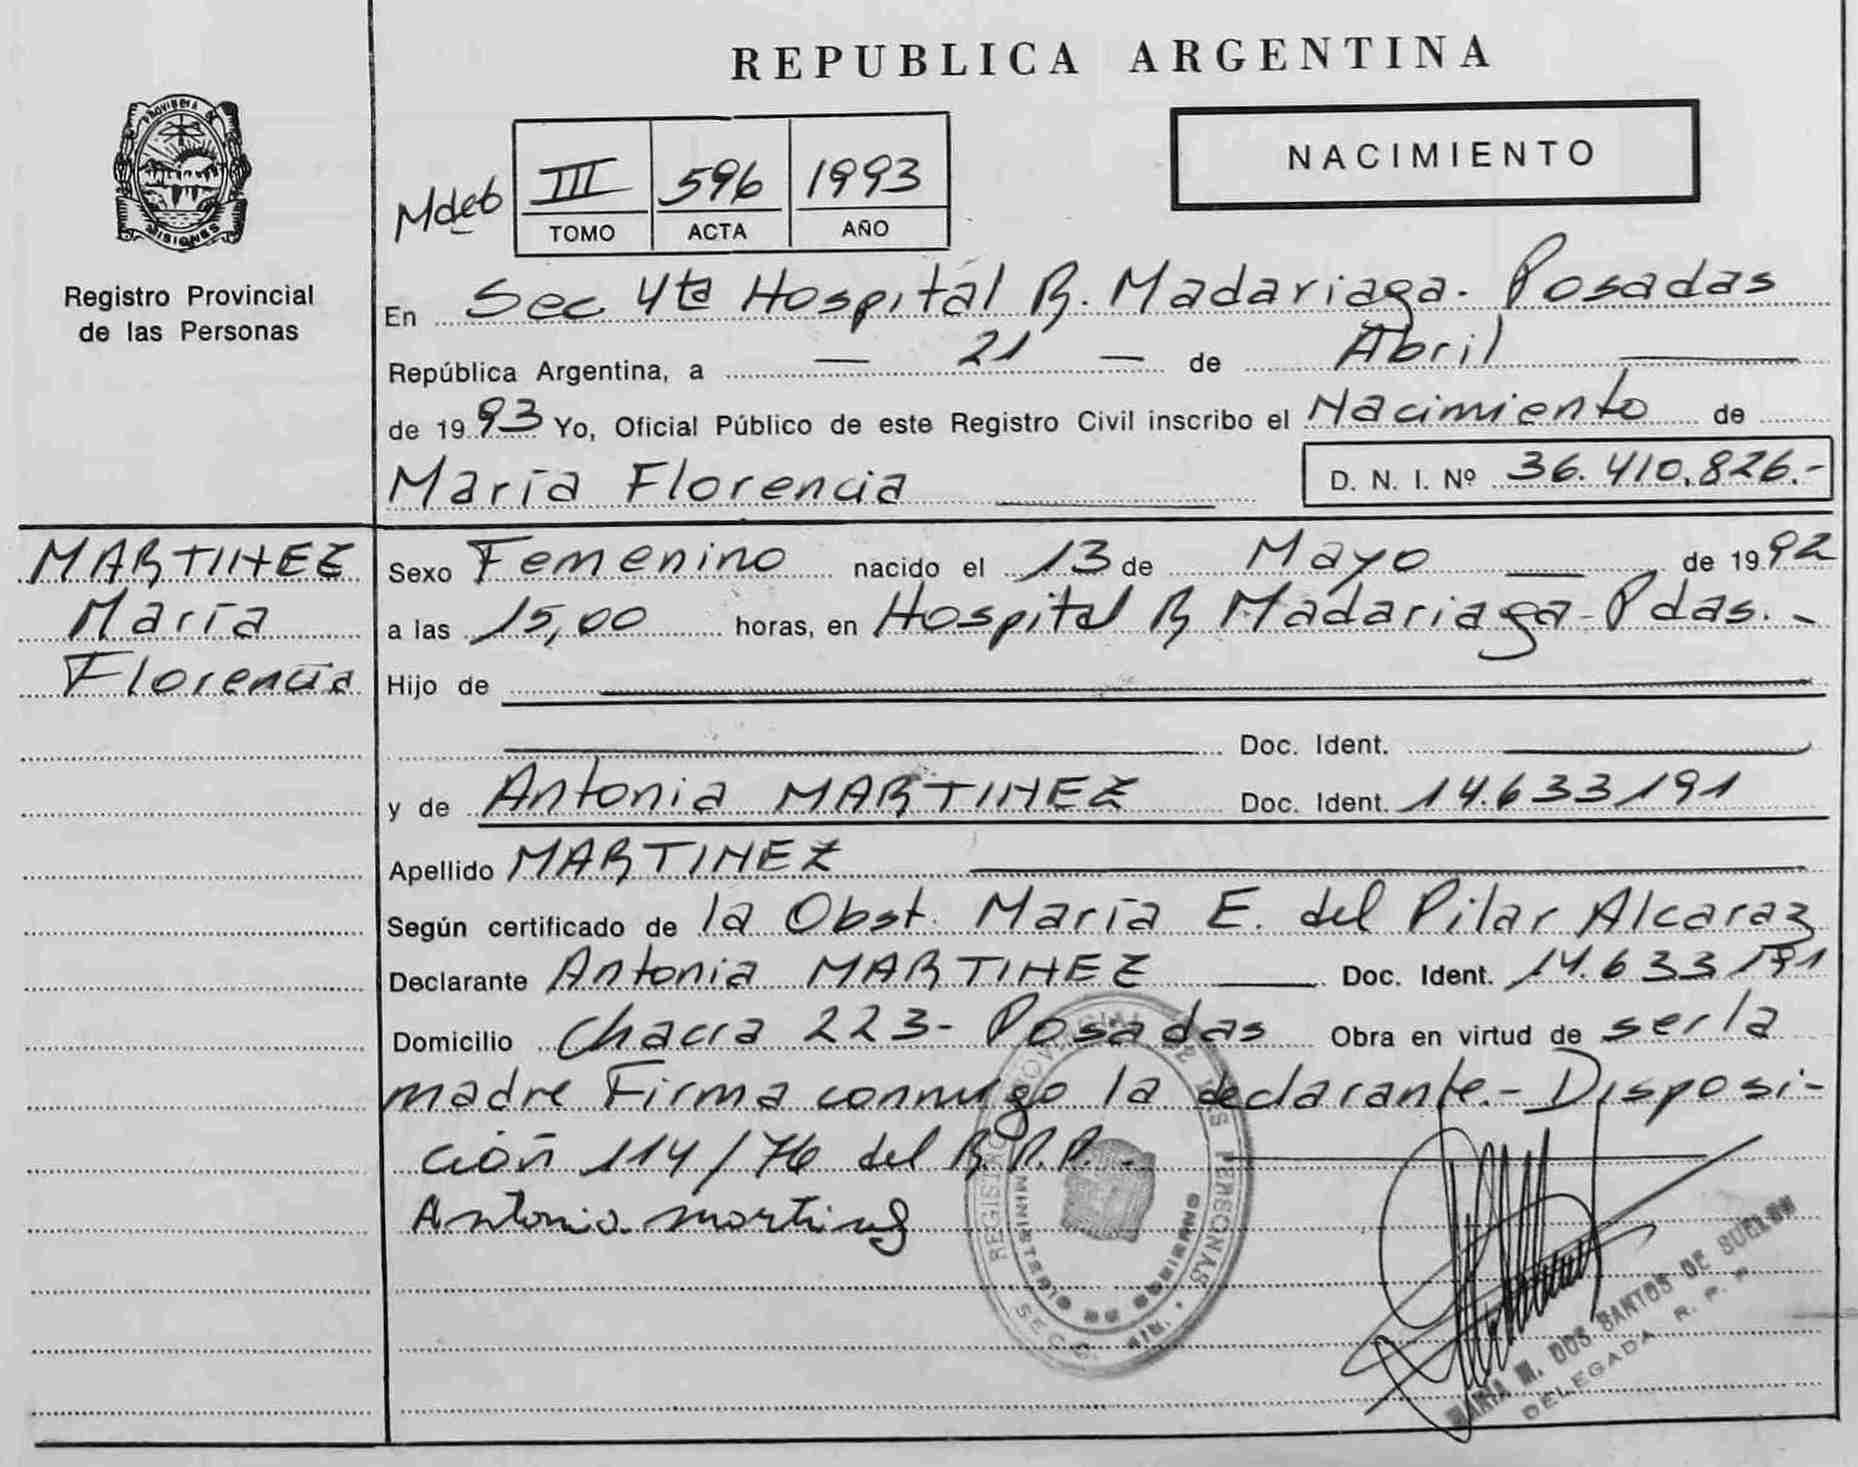 REPUBLICA ARGENTINA
PROVINCIA DE
MISIONES
Registro Provincial
de las Personas
NACIMIENTO
III 596 1993
TOMO ACTA AÑO
En Sec 4ta Hospital R. Madariaga. Posadas
República Argentina, a — 21 — de Abril
de 1993 Yo, Oficial Público de este Registro Civil inscribo el Nacimiento de
María Florencia D. N. I. Nº 36.410.826.-
MARTINEZ
María
Florencia
Sexo Femenino nacido el 13 de Mayo de 1992
a las 15,00 horas, en Hospital R Madariaga-Pdas.-
Hijo de
y Doc. Ident.
y de Antonia MARTINEZ Doc. Ident. 14.633191
Apellido MARTINEZ
Según certificado de la Obst. María E. del Pilar Alcaraz
Declarante Antonia MARTINEZ Doc. Ident. 14.633191
Domicilio Chacra 223- Posadas Obra en virtud de ser la
madre Firma conmigo la declarante.- Disposi-
ción 114/76 del R.P.P.-
Antonia Martinez
REGISTRO PROVINCIAL DE LAS PERSONAS
MINISTERIO DE GOBIERNO
MARIA M. DOS SANTOS DE SUELON
DELEGADA R. P. P.